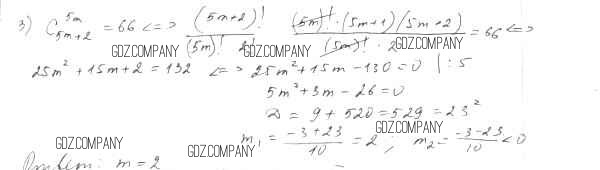 3) C_{5m+2}^{5m} = 66 <=> (5m+2)! / (5m)! 2! (5m)! · (5m+1)(5m+2) / (5m)! · 2 = 66 <=>
GDZ.COMPANY GDZ.COMPANY GDZ.COMPANY
25m² + 15m + 2 = 132 <=> 25m² + 15m - 130 = 0 | : 5
5m² + 3m - 26 = 0
D = 9 + 520 = 529 = 23²
GDZ.COMPANY GDZ.COMPANY GDZ.COMPANY
m₁ = (-3+23)/10 = 2 ; m₂ = (-3-23)/10 < 0
Ответ: m = 2